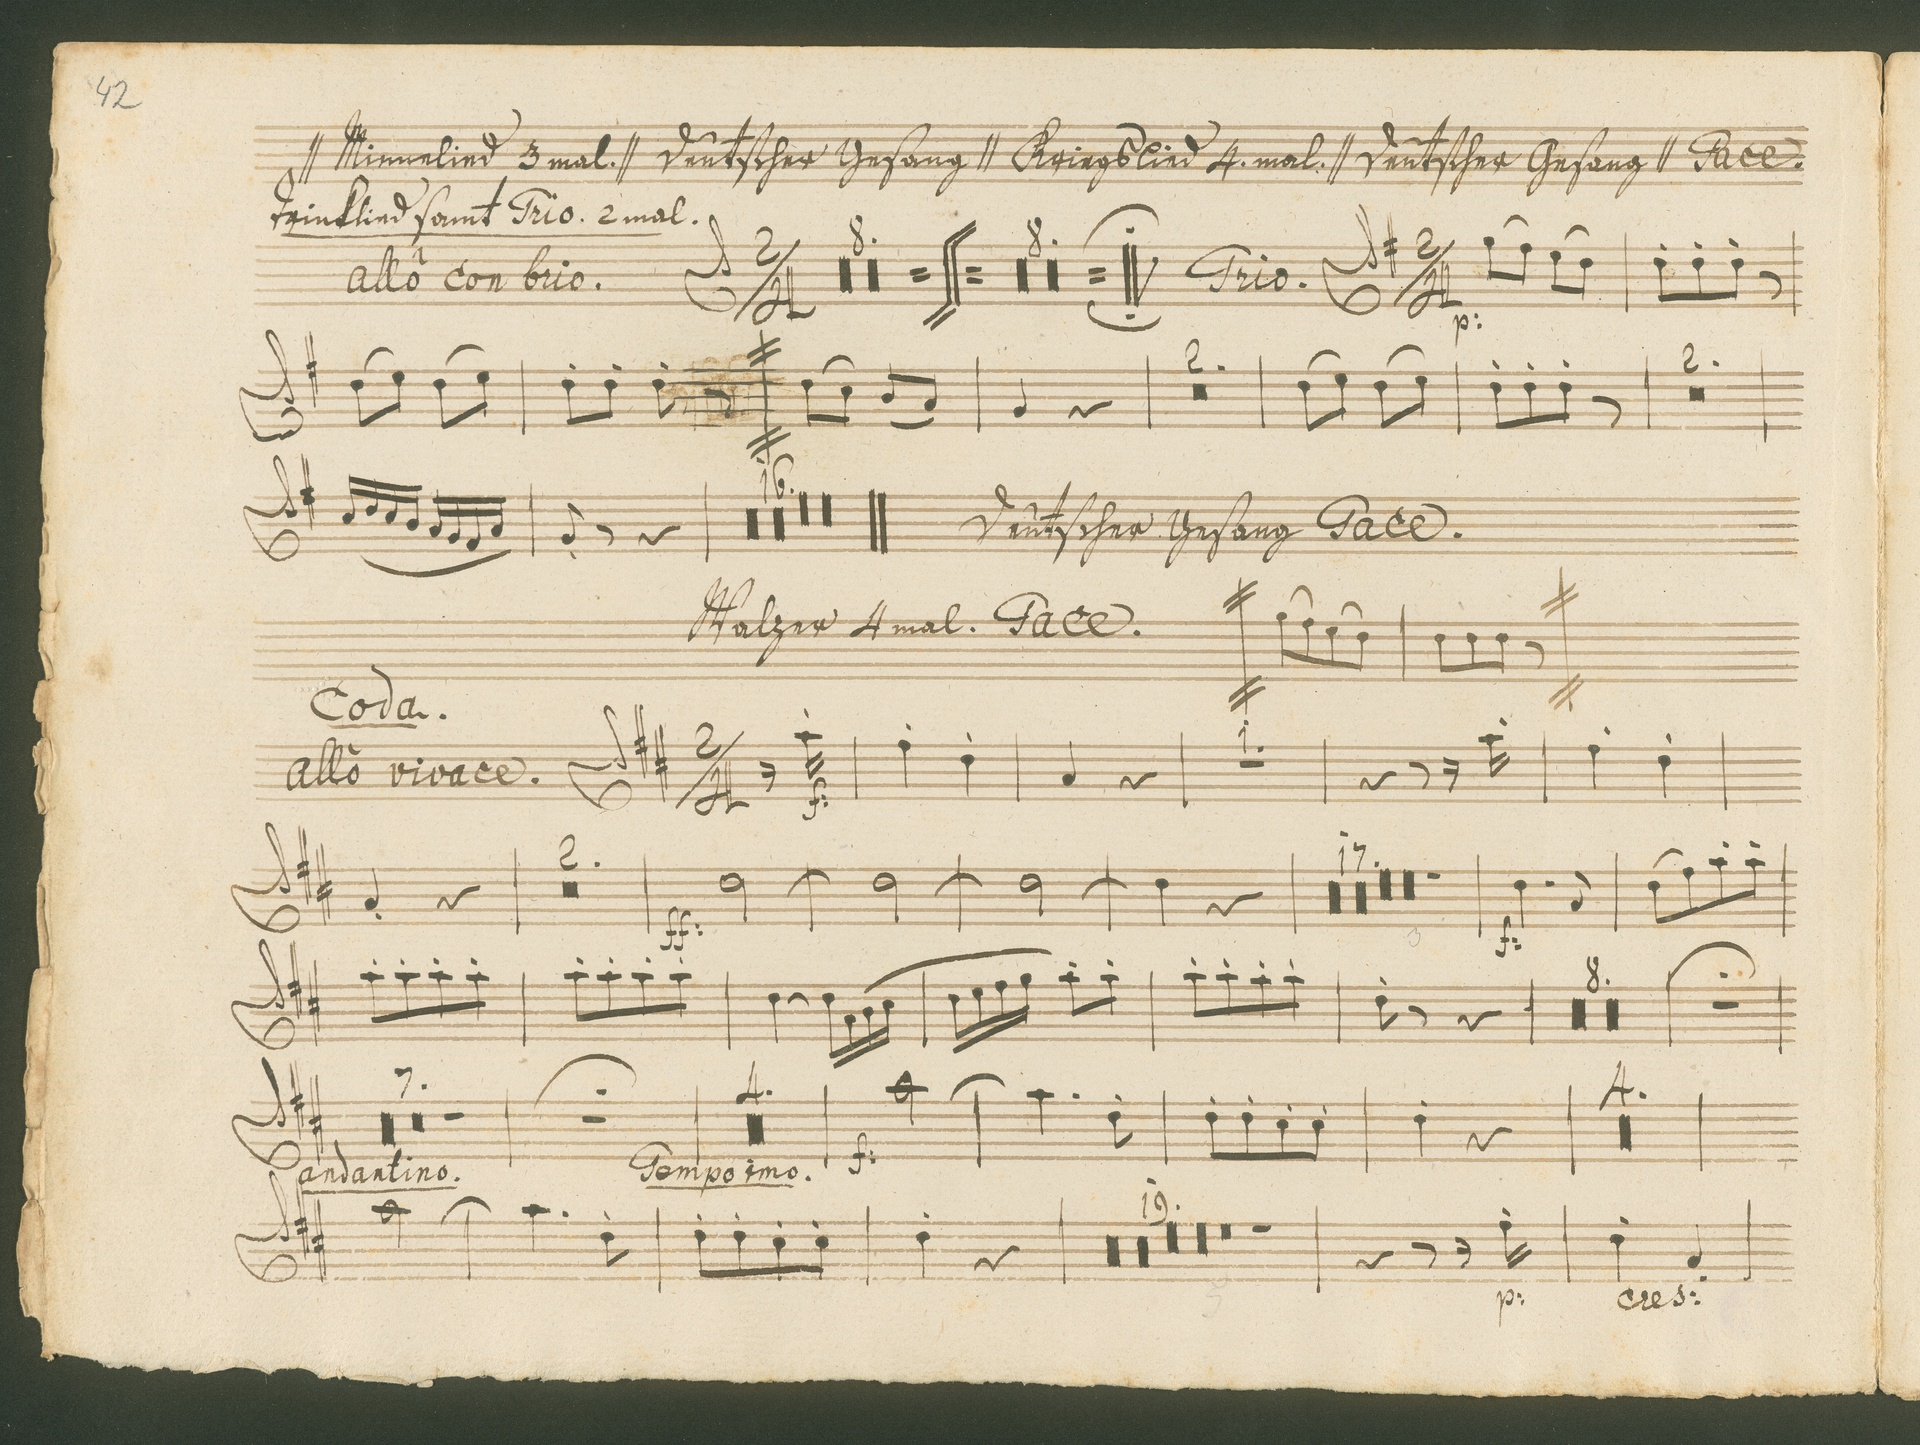 42
// Minnelied 3 mal. // Deutscher Gesang // Kriegslied 4. mal. // Deutscher Gesang // Tace.
Trinklied samt Trio. 2 mal.
allo con brio. 2/4 8. 8. Trio. 2/4
p:
2. 2.
16. Deutscher Gesang Tace.
Walzer 4 mal. Tace.
Coda.
allo vivace. 2/4 f: 1.
2. ff: 17. f:
8.
7. 4. f: 4.
andantino. Tempo imo.
19.
p: cres: